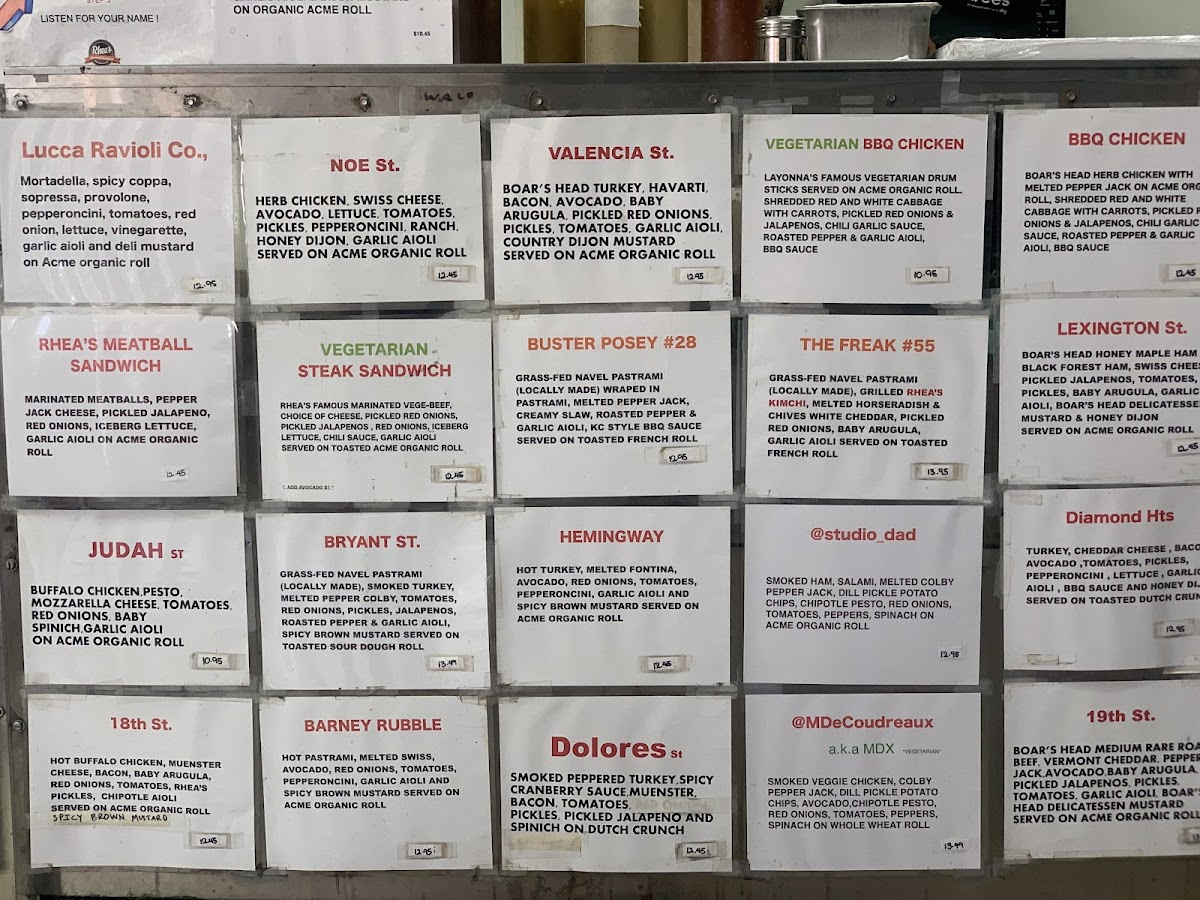 STEP 3
LISTEN FOR YOUR NAME!
Rhea's
ON ORGANIC ACME ROLL
$10.45
WALD
Lucca Ravioli Co.,
Mortadella, spicy coppa,
sopressa, provolone,
pepperoncini, tomatoes, red
onion, lettuce, vinegarette,
garlic aioli and deli mustard
on Acme organic roll
12.95
NOE St.
HERB CHICKEN, SWISS CHEESE,
AVOCADO, LETTUCE, TOMATOES,
PICKLES, PEPPERONCINI, RANCH,
HONEY DIJON, GARLIC AIOLI
SERVED ON ACME ORGANIC ROLL
12.45
VALENCIA St.
BOAR'S HEAD TURKEY, HAVARTI,
BACON, AVOCADO, BABY
ARUGULA, PICKLED RED ONIONS,
PICKLES, TOMATOES, GARLIC AIOLI,
COUNTRY DIJON MUSTARD
SERVED ON ACME ORGANIC ROLL
12.95
VEGETARIAN BBQ CHICKEN
LAYONNA'S FAMOUS VEGETARIAN DRUM
STICKS SERVED ON ACME ORGANIC ROLL.
SHREDDED RED AND WHITE CABBAGE
WITH CARROTS, PICKLED RED ONIONS &
JALAPENOS, CHILI GARLIC SAUCE,
ROASTED PEPPER & GARLIC AIOLI,
BBQ SAUCE
10.95
BBQ CHICKEN
BOAR'S HEAD HERB CHICKEN WITH
MELTED PEPPER JACK ON ACME ORG
ROLL, SHREDDED RED AND WHITE
CABBAGE WITH CARROTS, PICKLED R
ONIONS & JALAPENOS, CHILI GARLIC
SAUCE, ROASTED PEPPER & GARLIC
AIOLI, BBQ SAUCE
12.45
RHEA'S MEATBALL
SANDWICH
MARINATED MEATBALLS, PEPPER
JACK CHEESE, PICKLED JALAPENO,
RED ONIONS, ICEBERG LETTUCE,
GARLIC AIOLI ON ACME ORGANIC
ROLL
12.45
VEGETARIAN
STEAK SANDWICH
RHEA'S FAMOUS MARINATED VEGE-BEEF,
CHOICE OF CHEESE, PICKLED RED ONIONS,
PICKLED JALAPENOS , RED ONIONS, ICEBERG
LETTUCE, CHILI SAUCE, GARLIC AIOLI
SERVED ON TOASTED ACME ORGANIC ROLL
12.45
ADD AVOCADO $1
BUSTER POSEY #28
GRASS-FED NAVEL PASTRAMI
(LOCALLY MADE) WRAPED IN
PASTRAMI, MELTED PEPPER JACK,
CREAMY SLAW, ROASTED PEPPER &
GARLIC AIOLI, KC STYLE BBQ SAUCE
SERVED ON TOASTED FRENCH ROLL
12.95
THE FREAK #55
GRASS-FED NAVEL PASTRAMI
(LOCALLY MADE), GRILLED RHEA'S
KIMCHI, MELTED HORSERADISH &
CHIVES WHITE CHEDDAR, PICKLED
RED ONIONS, BABY ARUGULA,
GARLIC AIOLI SERVED ON TOASTED
FRENCH ROLL
13.95
LEXINGTON St.
BOAR'S HEAD HONEY MAPLE HAM
BLACK FOREST HAM, SWISS CHEES
PICKLED JALAPENOS, TOMATOES,
PICKLES, BABY ARUGULA, GARLIC
AIOLI, BOAR'S HEAD DELICATESSE
MUSTARD & HONEY DIJON
SERVED ON ACME ORGANIC ROLL
12.45
JUDAH ST
BUFFALO CHICKEN,PESTO,
MOZZARELLA CHEESE, TOMATOES,
RED ONIONS, BABY
SPINICH,GARLIC AIOLI
ON ACME ORGANIC ROLL
10.95
BRYANT ST.
GRASS-FED NAVEL PASTRAMI
(LOCALLY MADE), SMOKED TURKEY,
MELTED PEPPER COLBY, TOMATOES,
RED ONIONS, PICKLES, JALAPENOS,
ROASTED PEPPER & GARLIC AIOLI,
SPICY BROWN MUSTARD SERVED ON
TOASTED SOUR DOUGH ROLL
13.49
HEMINGWAY
HOT TURKEY, MELTED FONTINA,
AVOCADO, RED ONIONS, TOMATOES,
PEPPERONCINI, GARLIC AIOLI AND
SPICY BROWN MUSTARD SERVED ON
ACME ORGANIC ROLL
12.45
@studio_dad
SMOKED HAM, SALAMI, MELTED COLBY
PEPPER JACK, DILL PICKLE POTATO
CHIPS, CHIPOTLE PESTO, RED ONIONS,
TOMATOES, PEPPERS, SPINACH ON
ACME ORGANIC ROLL
12.95
Diamond Hts
TURKEY, CHEDDAR CHEESE , BACO
AVOCADO ,TOMATOES, PICKLES,
PEPPERONCINI , LETTUCE , GARLIC
AIOLI , BBQ SAUCE AND HONEY DIJ
SERVED ON TOASTED DUTCH CRUN
12.95
18th St.
HOT BUFFALO CHICKEN, MUENSTER
CHEESE, BACON, BABY ARUGULA,
RED ONIONS, TOMATOES, RHEA'S
PICKLES, CHIPOTLE AIOLI
SERVED ON ACME ORGANIC ROLL
SPICY BROWN MUSTARD
12.45
BARNEY RUBBLE
HOT PASTRAMI, MELTED SWISS,
AVOCADO, RED ONIONS, TOMATOES,
PEPPERONCINI, GARLIC AIOLI AND
SPICY BROWN MUSTARD SERVED ON
ACME ORGANIC ROLL
12.95
Dolores St
SMOKED PEPPERED TURKEY,SPICY
CRANBERRY SAUCE,MUENSTER,
BACON, TOMATOES,
PICKLES, PICKLED JALAPENO AND
SPINICH ON DUTCH CRUNCH
12.45
@MDeCoudreaux
a.k.a MDX "VEGETARIAN"
SMOKED VEGGIE CHICKEN, COLBY
PEPPER JACK, DILL PICKLE POTATO
CHIPS, AVOCADO,CHIPOTLE PESTO,
RED ONIONS, TOMATOES, PEPPERS,
SPINACH ON WHOLE WHEAT ROLL
13.49
19th St.
BOAR'S HEAD MEDIUM RARE ROA
BEEF, VERMONT CHEDDAR, PEPPER
JACK,AVOCADO,BABY ARUGULA,
PICKLED JALAPENOS, PICKLES,
TOMATOES, GARLIC AIOLI, BOAR'S
HEAD DELICATESSEN MUSTARD
SERVED ON ACME ORGANIC ROLL